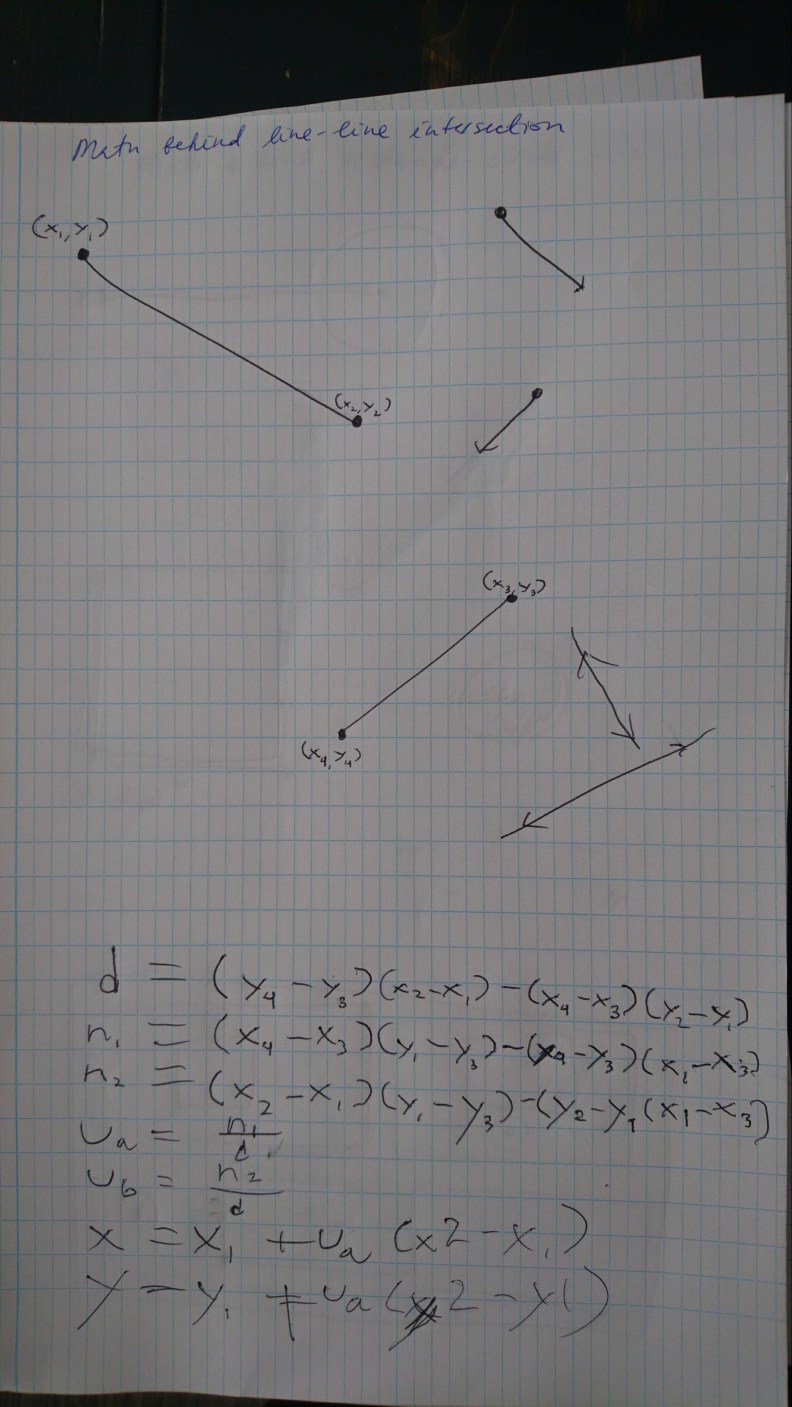 Math behind line-line intersection
(x₁, y₁)
(x₂, y₂)
(x₃, y₃)
(x₄, y₄)
d = (y₄ - y₃)(x₂ - x₁) - (x₄ - x₃)(y₂ - y₁)
n₁ = (x₄ - x₃)(y₁ - y₃) - (y₄ - y₃)(x₁ - x₃)
n₂ = (x₂ - x₁)(y₁ - y₃) - (y₂ - y₁(x₁ - x₃)
ua = n₁/d
ub = n₂/d
x = x₁ + ua (x2 - x₁)
y = y₁ + ua (y2 - y1)